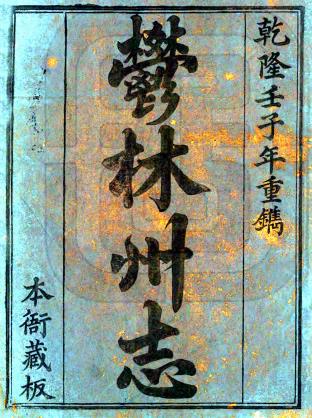 乾隆壬子年重鐫
鬱林州志
本衙藏板